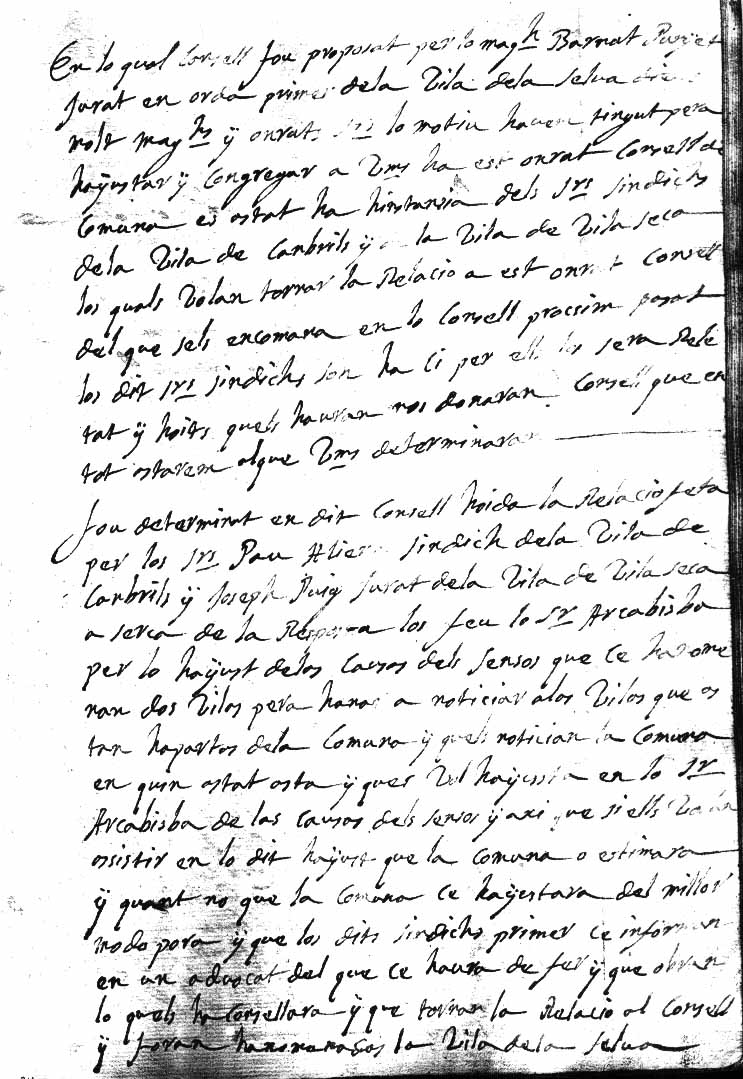 En lo qual Consell fou proposat per lo magh Barnat Puget
Jurat en orda primer dela Vila dela Selva
molt maghs ÿ onrats srs lo motiu haven tingut pera
haÿustar ÿ Congregar a Vms ha est onrat Consell de
Comuna es astat ha hinstansia dels srs sindichs
dela Vila de Canbrils ÿ la Vila de Vila seca
los quals Volan tornar la Relacio a est onrat Consell
del que sels encomana en lo Consell procsim pasat
los dit srs sindichs son ha ci per ells los sera Rele
tat ÿ hoits quels hauran nos donaran Consell que en
tot astarem alque Vms determinaran
fou determinat en dit Consell hoida la Relacio feta
per los srs Pau sindich dela Vila de
Canbrils ÿ Joseph Puig Jurat dela Vila de Vila seca
a serca de la Resposta los feu lo sr Arcabisba
per lo haÿust delas Causas dels sensos que ce
nan dos Vilas pera hanar a noticiar alas Vilas que as
tan hapartas dela Comuna ÿ quels notician la Comuna
en quin astat asta ÿ ques Vol haÿusta en lo sr
Arcabisba de las Causas dels sensos ÿ axi que si ells Volan
assistir en lo dit haÿust que la Comuna o estimara
ÿ quant no que la Comuna ce haÿustara del millor
modo pora ÿ que los dits sindichs primer ce informan
en un advocat del que ce haura de fer ÿ que obran
lo quels ha Consellara ÿ que tornan la Relacio al Consell
ÿ foran la Vila dela Selva